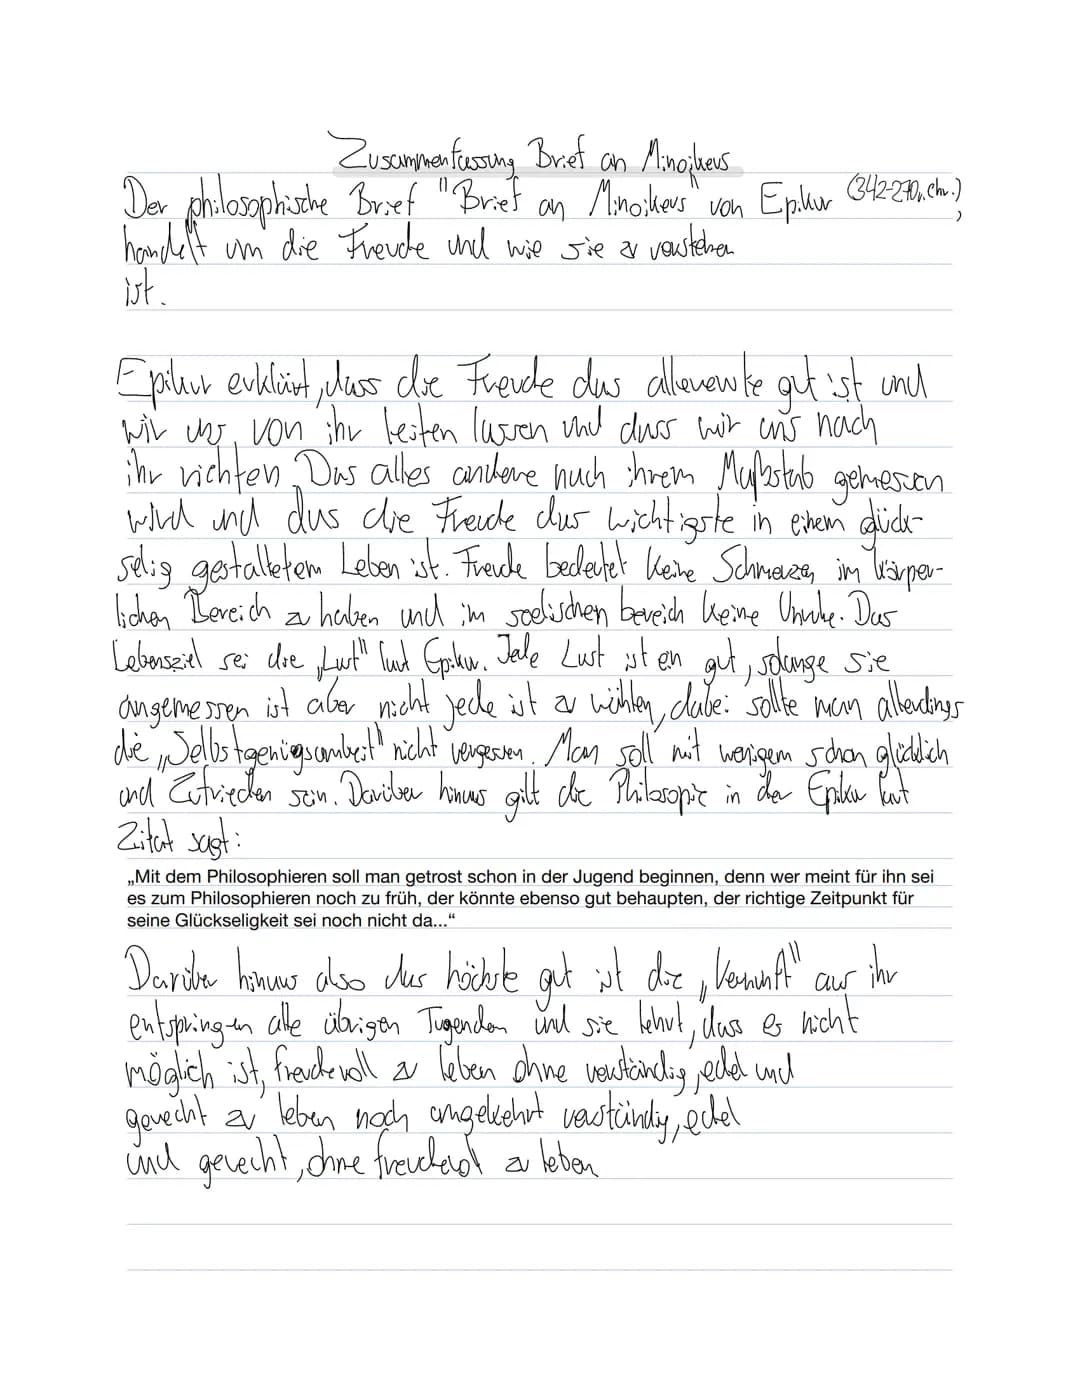 Zusammenfassung Brief an Minoikeus
Der philosophische Brief "Brief an Minoikeus" von Epikur (342-270 v. Chr.),
handelt um die Freude und wie sie zu verstehen
ist.
Epikur erklärt, dass die Freude das allererste gut ist und
wir uns von ihr leiten lassen und dass wir uns nach
ihr richten. Das alles andere nach ihrem Maßstab gemessen
wird und das die Freude das wichtigste in einem glück-
selig gestalltetem Leben ist. Freude bedeutet keine Schmerzen im körper-
lichen Bereich zu haben und im seelischen bereich keine Unruhe. Das
Lebensziel sei die „Lust" laut Epikur. Jede Lust ist ein gut, solange sie
angemessen ist aber nicht jede ist zu wählen, dabei sollte man allerdings
die „Selbstgenügsamkeit" nicht vergessen. Man soll mit wenigem schon glücklich
und Zufrieden sein. Darüber hinaus gilt die Philosopie in der Epikur laut
Zitat sagt:
„Mit dem Philosophieren soll man getrost schon in der Jugend beginnen, denn wer meint für ihn sei
es zum Philosophieren noch zu früh, der könnte ebenso gut behaupten, der richtige Zeitpunkt für
seine Glückseligkeit sei noch nicht da...“
Darüber hinaus also das höchste gut ist die „Vernunft" aus ihr
entspringen alle übrigen Tugenden und sie lehrt, dass es nicht
möglich ist, freudevoll zu leben ohne verständig, edel und
gerecht zu leben noch umgekehrt verständig, edel
und gerecht, ohne freudevoll zu leben